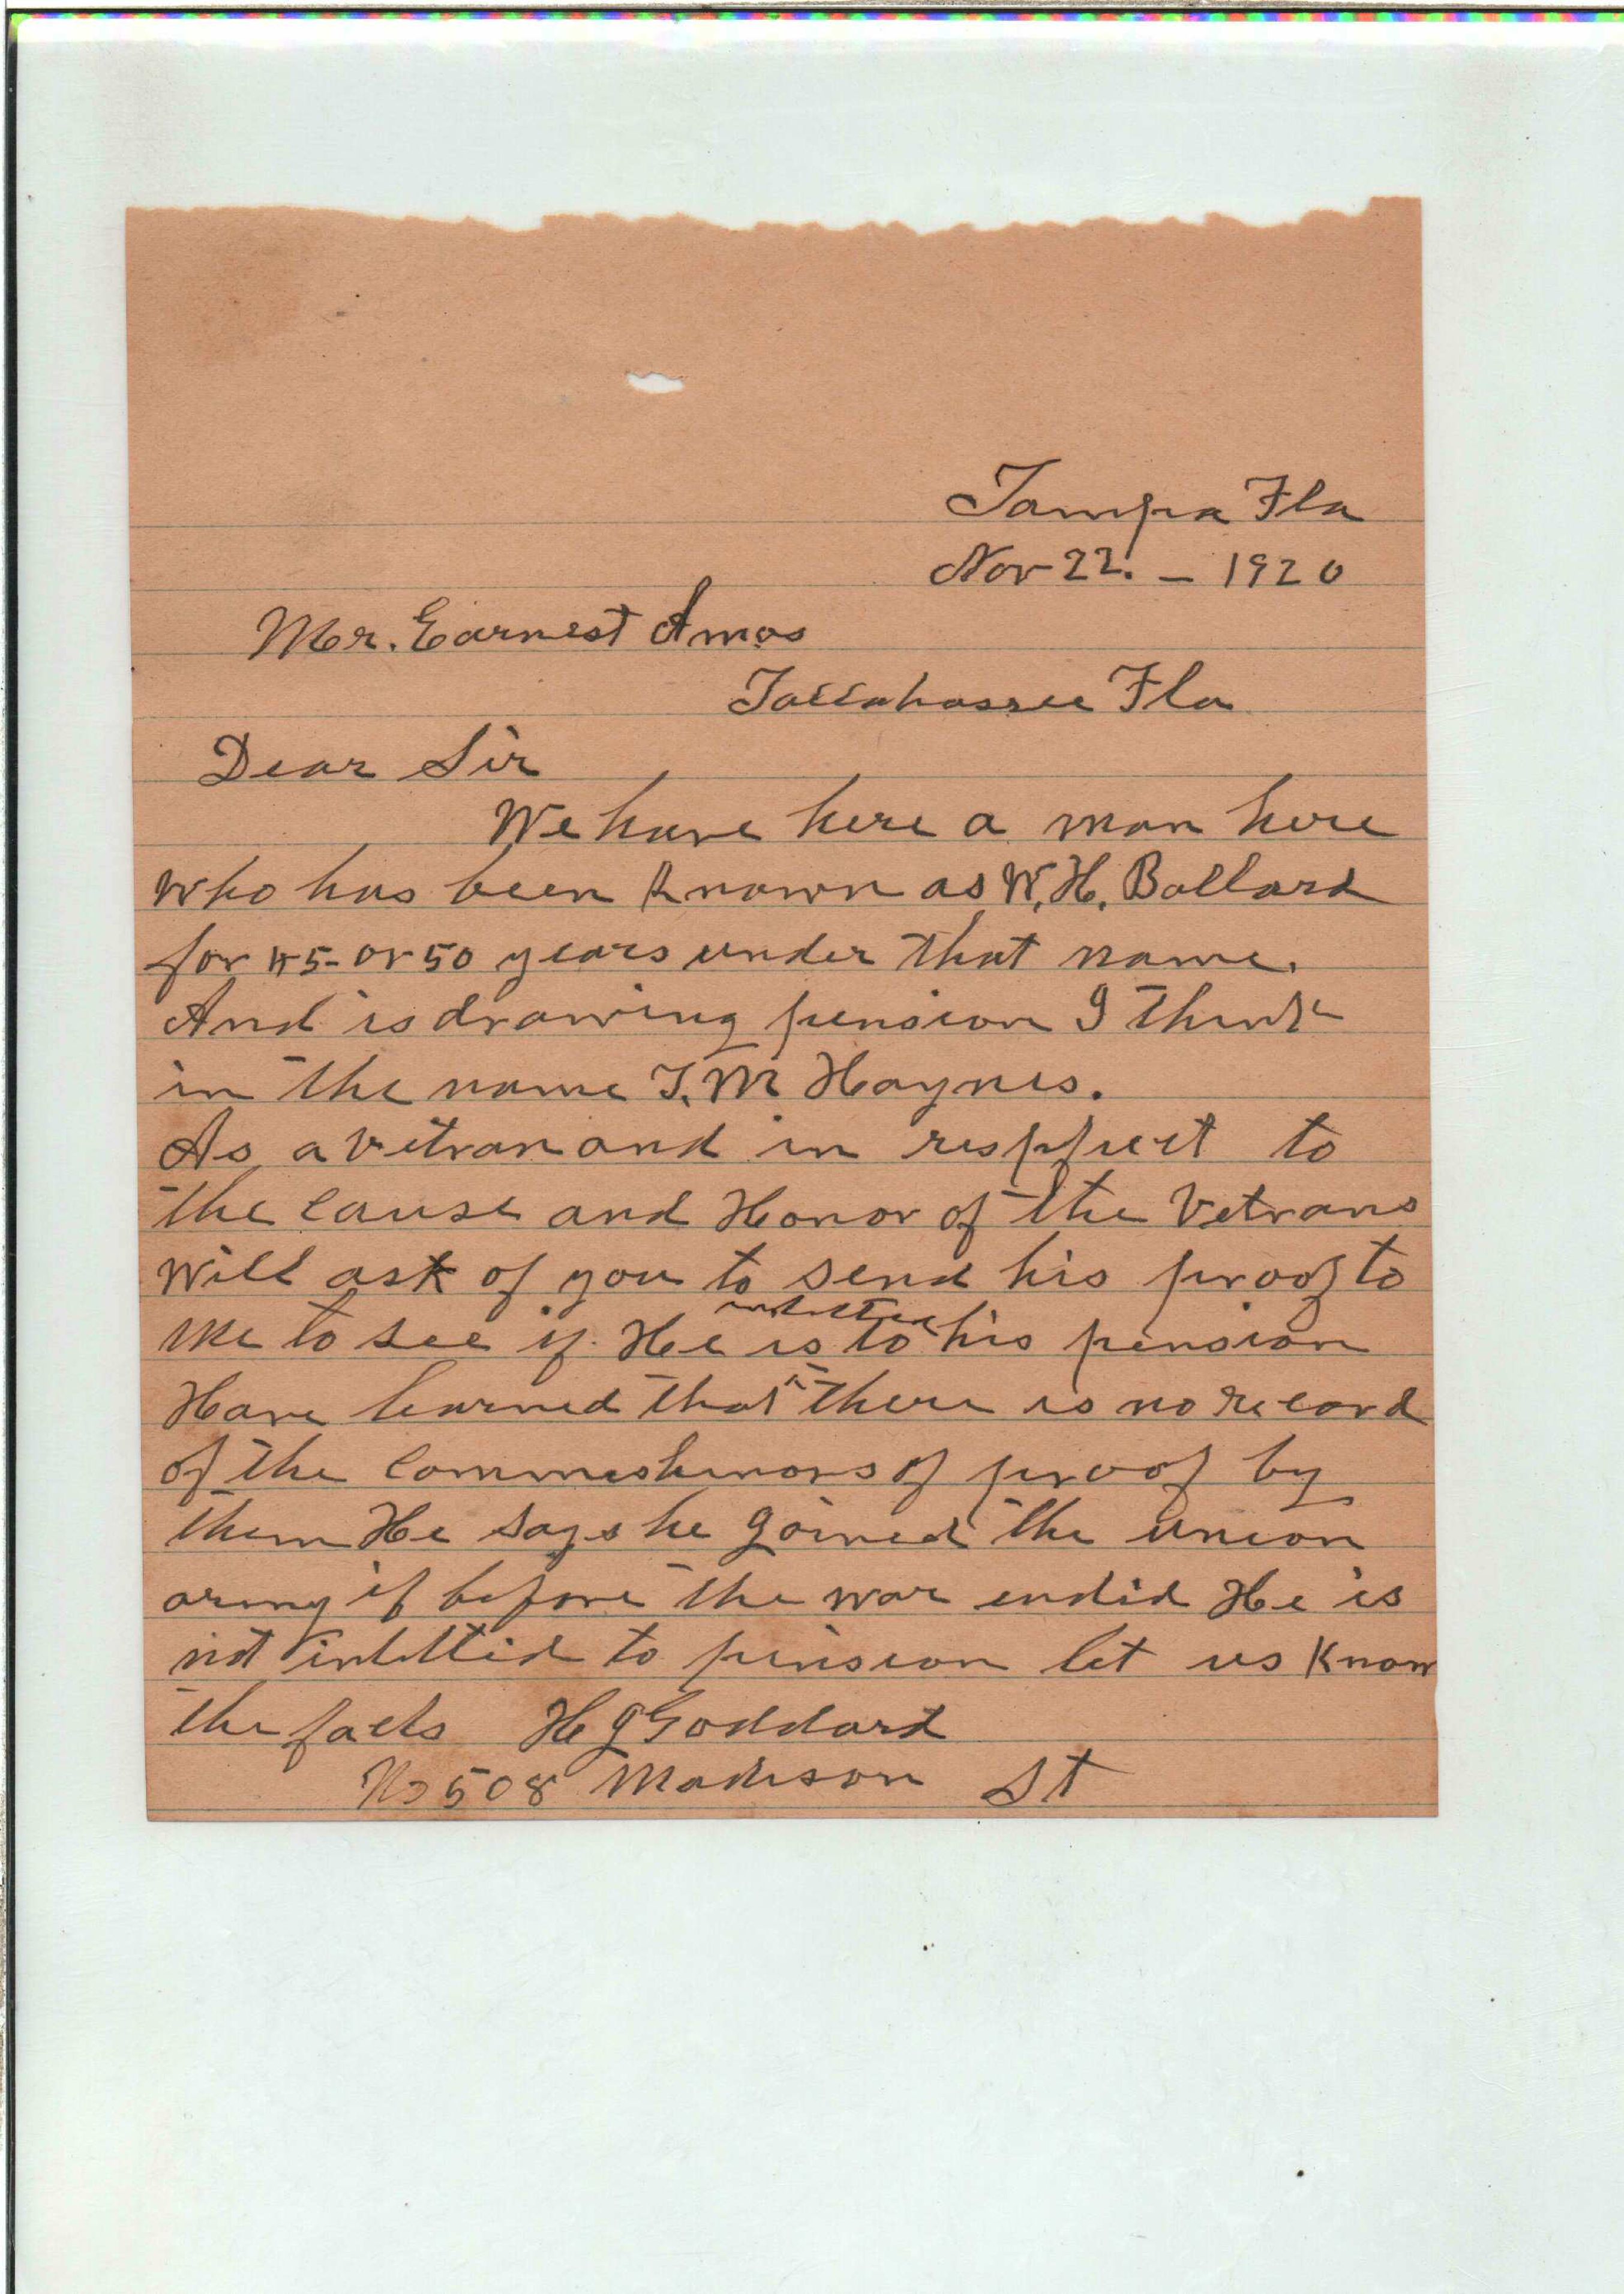 Tampa Fla
Nov 22. - 1920
Mr. Earnest Amos
Tallahassee Fla
Dear Sir
We have here a man here
who has been known as W. H. Ballard
for 45- or 50 years under that name.
And is drawing pension I think
in the name T. M Haynes.
As a vetran and in respect to
the cause and Honor of the Vetrans
will ask of you to send his proof to
me to see if He is intitled to his pension
Have learned that there is no record
of the commeshinors of proof by
them He says he joined the union
army if before the war endid He is
not intittid to pinsion let us know
the facts H J Goddard
No 508 Madison St